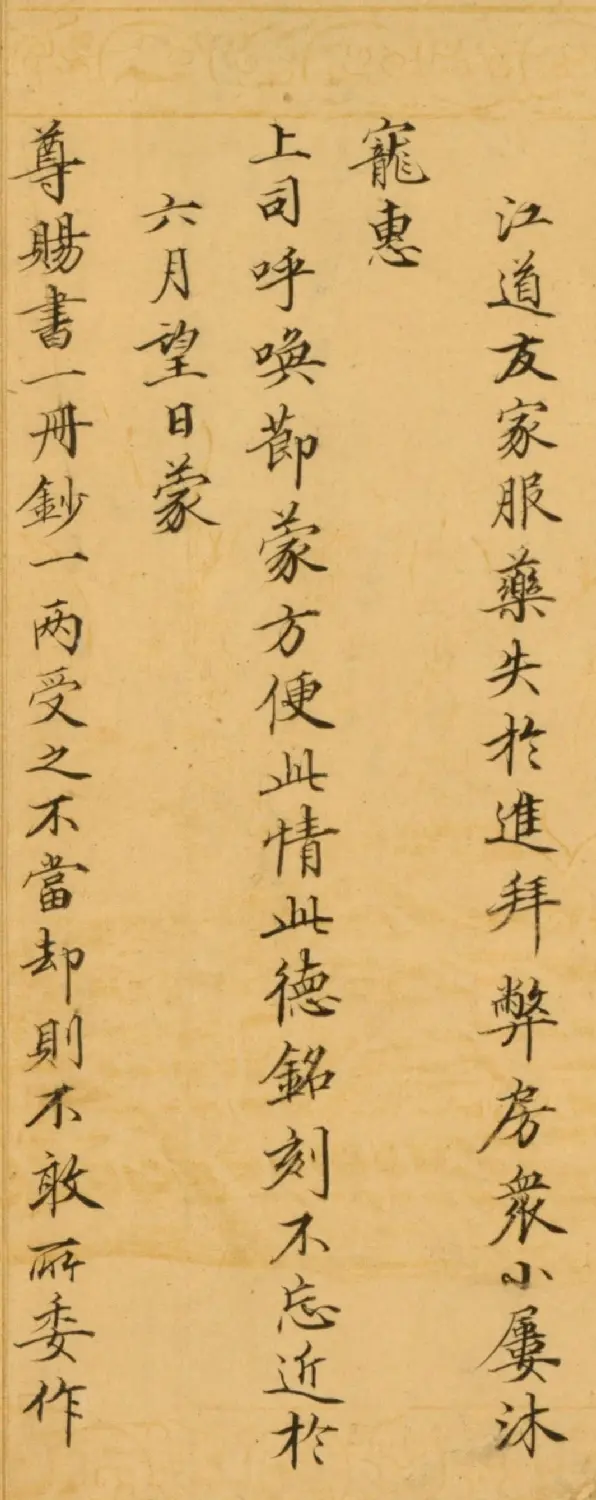 江道友家服藥失於進拜弊房衆小屢沐
寵惠
上司呼喚節蒙方便此情此德銘刻不忘近於
六月望日蒙
尊賜書一冊鈔一两受之不當却則不敢所委作